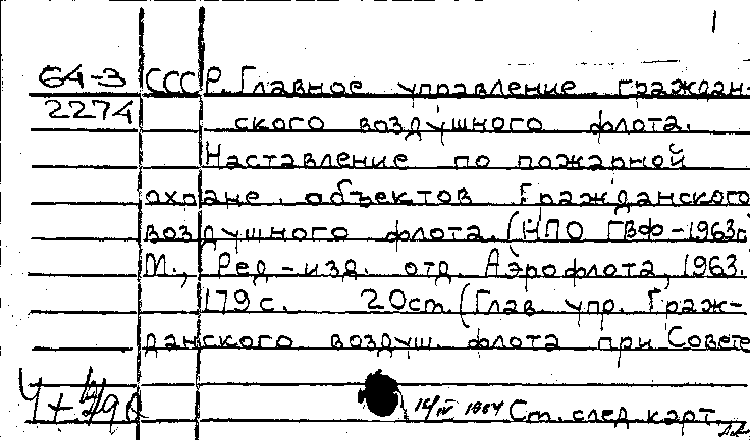 1
64-3 СССР. Главное управление граждан-
2274 ского воздушного флота.
Наставление по пожарной
охране объектов Гражданского
воздушного флота. (НПО ГВФ-1963г.
М., Ред-изд. отд. Аэрофлота, 1963.
179 с. 20см. (Глав. упр. Граж-
данского воздуш. флота при Совете
14/IV 1964 См. след. карт.